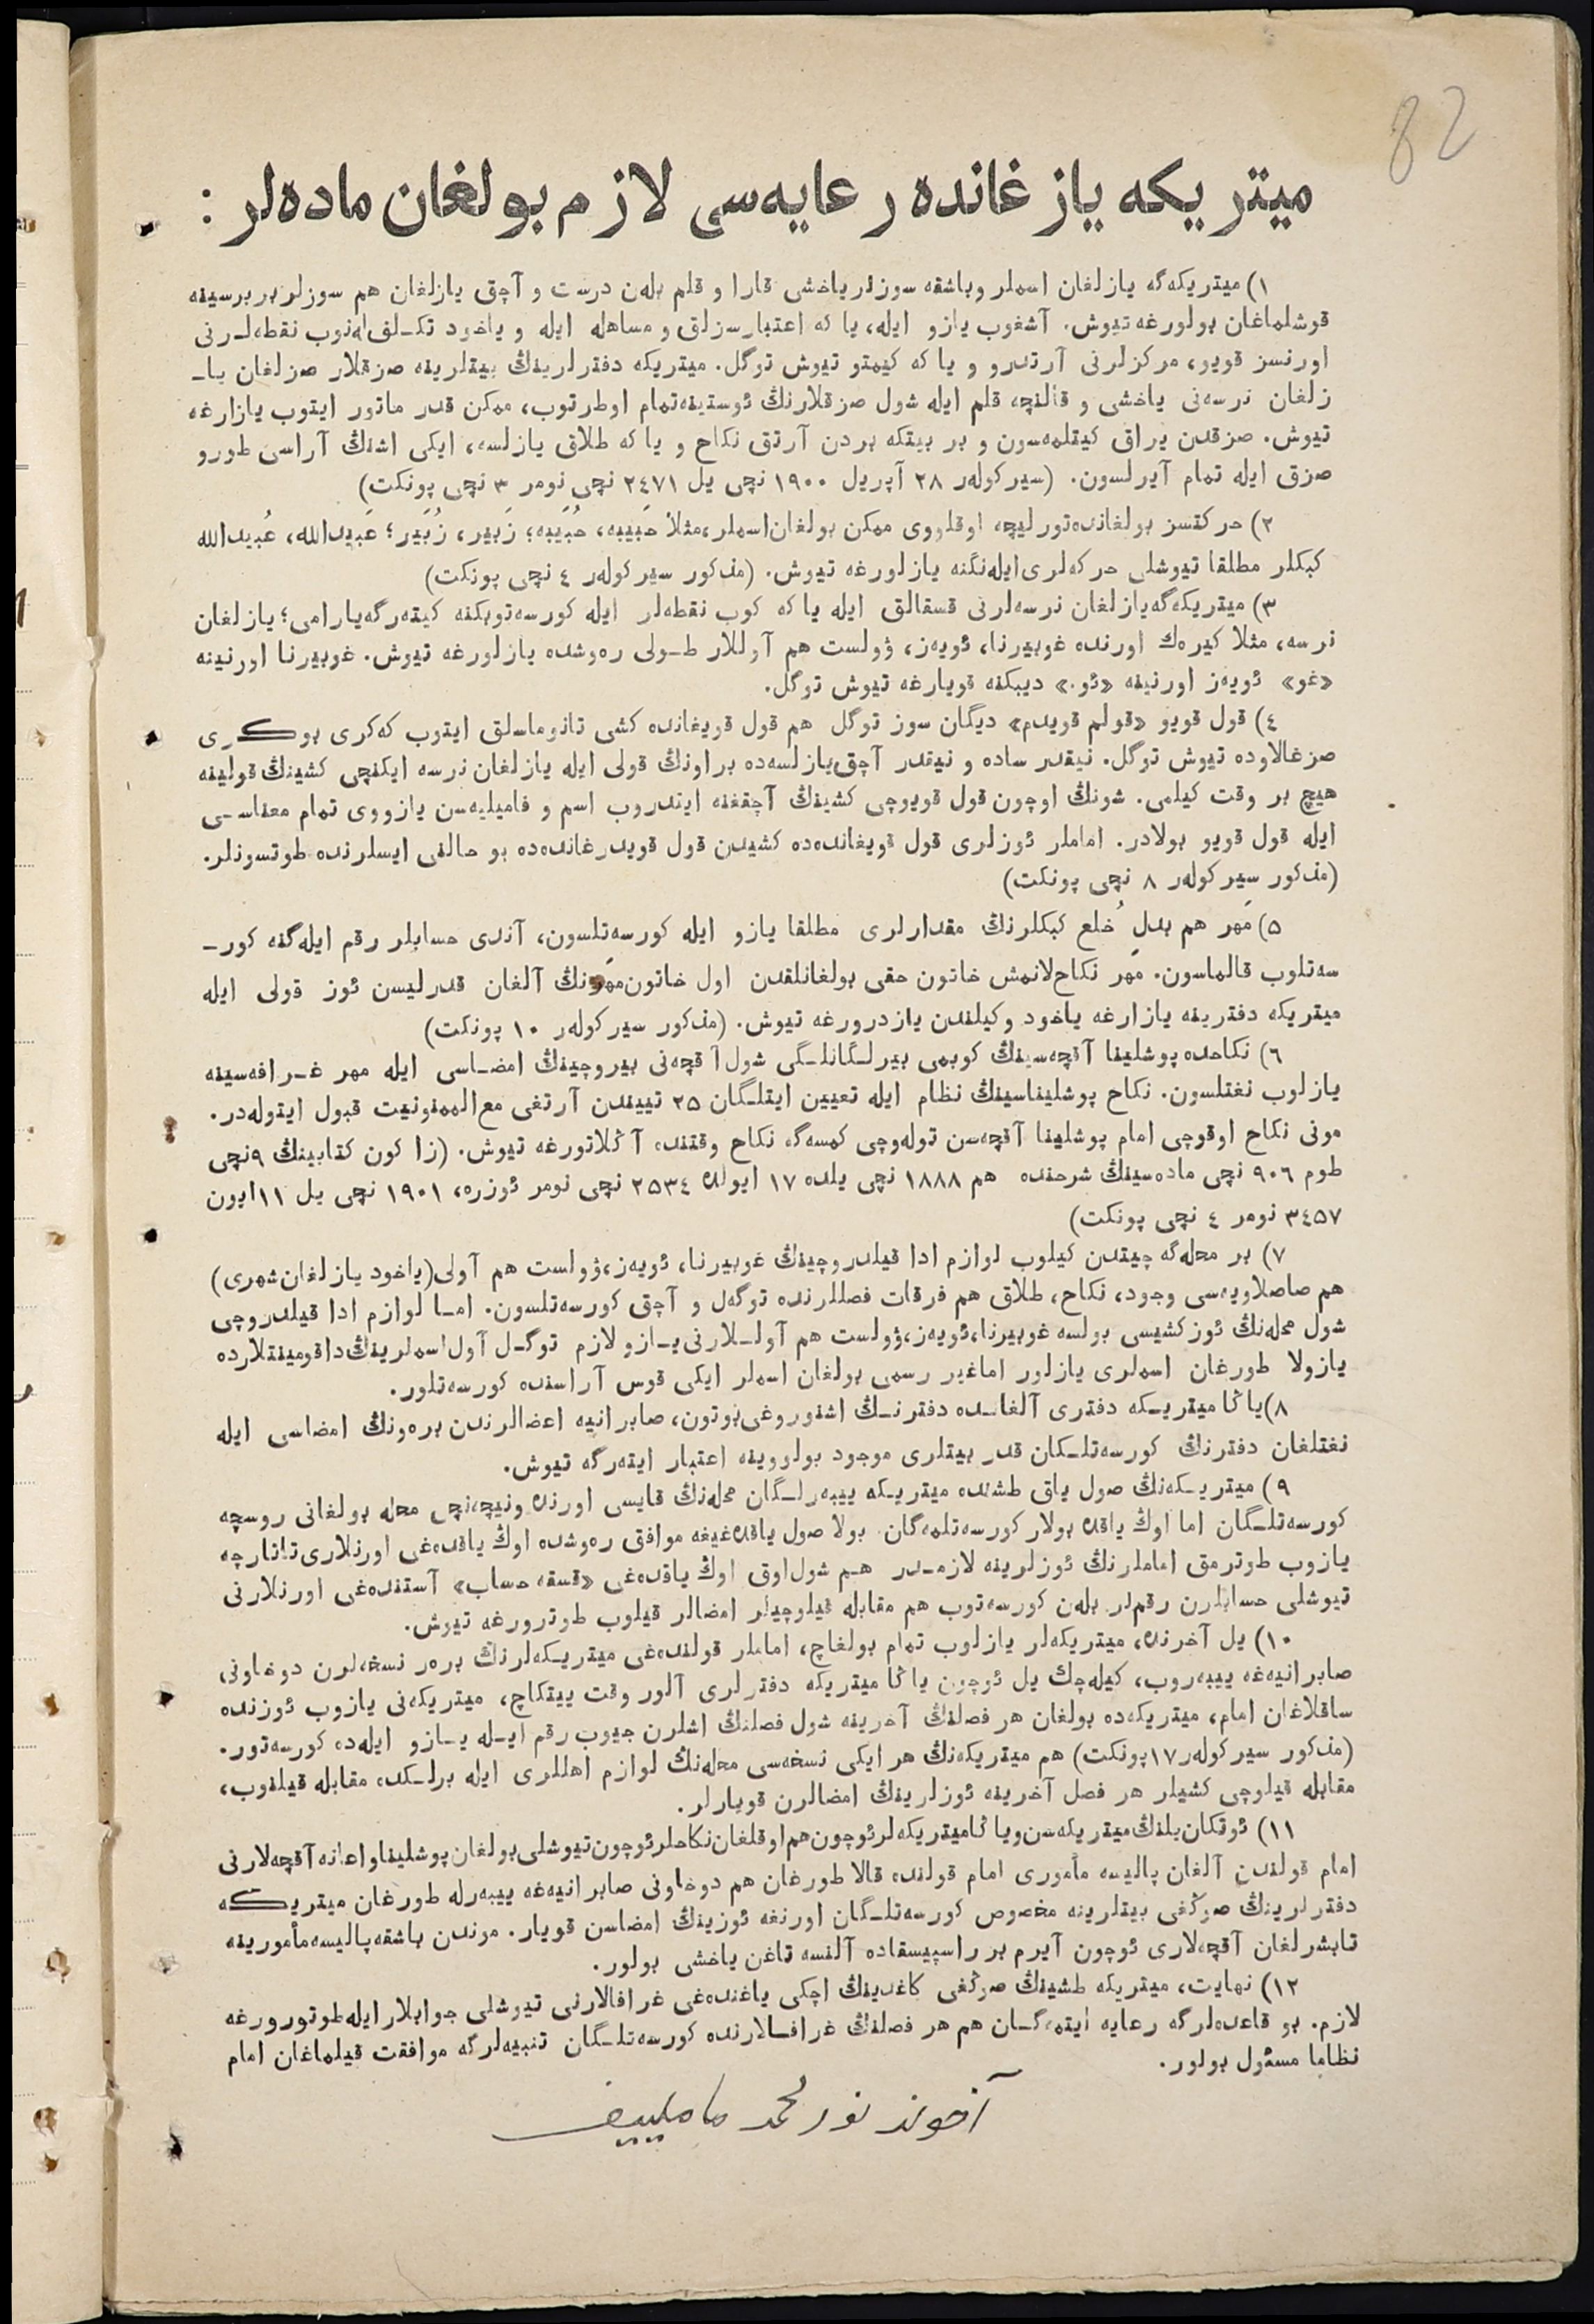 82
ميتريكه يازغانده رعايه‌سى لازم بولغان ماده‌لر :
١) ميتريكه‌گه يازلغان اسملر وباشقه سوزلر ياخشى قارا و قلم بله‌ن درست و آچق يازلغان هم سوزلر بربرسينه
قوشلماغان بولورغه تيوش. آشغوب يازو ايله، يا كه اعتبارسزلق و مساهله ايله و ياخود تكـلف‌له‌نوب نقطه‌لـرنى
اورنسز قويو، مركزلرنى آرتدرو و يا كه كيمتو تيوش توگل. ميتريكه دفترلرينڭ بيتلرينه صزقلار صزلغان يا‍ـ
زلغان نرسه‌نى ياخشى و قالنچه قلم ايله شول صزقلارنڭ ئوستينه‌تمام اوطرتوب، ممكن قدر ماتور ايتوب يازارغه
تيوش. صزقدن يراق كيتلمه‌سون و بر بيتكه بردن آرتق نكاح و يا كه طلاق يازلسه، ايكى اشنڭ آراسى طورو
صزق ايله تمام آيرلسون. (سيركوله‌ر ٢٨ آپريل ١٩٠٠ نچى يل ٢٤٧١ نچى نومر ٣ نچى پونكت)
٢) حركتسز بولغانده‌تورليچه اوقلووى ممكن بولغان‌اسملر،مثلاً حَبيبه، حُبَيبه؛ زَبير، زُبَير؛ عَبيدالله، عُبيدالله
كبكلر مطلقا تيوشلى حركه‌لرى‌ايله‌نگنه يازلورغه تيوش. (مذكور سيركوله‌ر ٤ نچى پونكت)
٣) ميتريكه‌گه‌يازلغان نرسه‌لرنى قسقالق ايله يا كه كوب نقطه‌لر ايله كورسه‌توبكنه كيته‌رگه‌يارامى؛ يازلغان
نرسه، مثلا كيره‌ك اورنده غوبيرنا، ئويه‌ز، ۋولست هم آوللار طـولى ره‌وشده يازلورغه تيوش. غوبيرنا اورنينه
«غو» ئويه‌ز اورنينه «ئو.» ديبكنه قويارغه تيوش توگل.
٤) قول قويو «قولم قويدم» ديگان سوز توگل هم قول قويغانده كشى تانوماسلق ايتوب كه‌كرى بوكـرى
صزغالاوده تيوش توگل. نيقدر ساده و نيقدر آچق‌يازلسه‌ده براونڭ قولى ايله يازلغان نرسه ايكنچى كشينڭ قولينه
هيچ بر وقت كيلمى. شونڭ اوچون قول قويوچى كشينڭ آچقغنه ايتدروب اسم و فاميليه‌سن يازووى تمام معناسـى
ايله قول قويو بولادر. اماملر ئوزلرى قول قويغانده‌ده كشيدن قول قويدرغانده‌ده بو حالنى ايسلرنده طوتسونلر.
(مذكور سيركوله‌ر ٨ نچى پونكت)
٥) مَهر هم بدلِ خُلع كبكلرنڭ مقدارلرى مطلقا يازو ايله كورسه‌تلسون، آندى حسابلر رقم ايله‌گنه كور‍ـ
سه‌تلوب قالماسون. مَهر نكاح‌لانمش خاتون حقى بولغانلقدن اول خاتون‌مهرنڭ آلغان قدرليسن ئوز قولى ايله
ميتريكه دفترينه يازارغه ياخود وكيلندن يازدرورغه تيوش. (مذكور سيركوله‌ر ١٠ پونكت)
٦) نكاحده پوشلينا آقچه‌سينڭ كوبمى بيرلـگانلـگى شول آقچه‌نى بيروچينڭ امضـاسى ايله مهر غـرافه‌سينه
يازلوب نغتلسون. نكاح پوشليناسينڭ نظام ايله تعيين ايتلـگان ٢٥ تييندن آرتغى مع‌الممنونيت قبول ايتوله‌در.
مونى نكاح اوقوچى امام پوشلينا آقچه‌سن توله‌وچى كمسه‌گه نكاح وقتنده آڭلاتورغه تيوش. (زاكون كتابينڭ ٩نچى
طوم ٩٠٦ نچى ماده‌سينڭ شرحنده هم ١٨٨٨ نچى يلده ١٧ ايولده ٢٥٣٤ نچى نومر ئوزره، ١٩٠١ نچى يل ١١ايون
٣٤٥٧ نومر ٤ نچى پونكت)
٧) بر محله‌گه چيتدن كيلوب لوازم ادا قيلدروچينڭ غوبيرنا، ئويه‌ز،ۋولست هم آولى(ياخود يازلغان‌شهرى)
هم صاصلاويه‌سى وجود، نكاح، طلاق هم فرقات فصللرنده توگه‌ل و آچق كورسه‌تلسون. امـا لوازم ادا قيلدروچى
شول محله‌نڭ ئوزكشيسى بولسه غوبيرنا،ئويه‌ز،ۋولست هم آولـلارنى‌يـازو لازم توگـل آول‌اسملرينڭ‌داقومينتلارده
يازولا طورغان اسملرى يازلور اماغير رسمى بولغان اسملر ايكى قوس آراسنده كورسه‌تلور.
٨)ياڭا ميتريـكه دفترى آلغانـده دفترنـڭ اشنوروغى‌بوتون، صابرانيه اعضالرندن بره‌ونڭ امضاسى ايله
نغتلغان دفترنڭ كورسه‌تلـكان قدر بيتلرى موجود بولووينه اعتبار ايته‌رگه تيوش.
٩) ميتريـكه‌نڭ صول ياق طشنده ميتريـكه ييبه‌رلـگان محله‌نڭ قايسى اورنده ونيچه‌نچى محله بولغانى روسچه
كورسه‌تلـگان اما اوڭ ياقده بولار كورسه‌تلمه‌گان. بولا صول ياقده‌غيغه موافق ره‌وشده اوڭ ياقده‌غى اورنلارى‌تاتارچه
يازوب طوترمق اماملرنڭ ئوزلرينه لازمـدر هـم شول‌اوق اوڭ ياقده‌غى «قسقه حساب» آستنده‌غى اورنلارنى
تيوشلى حسابلرن رقم‌لر بله‌ن كورسه‌توب هم مقابله قيلوچيلر امضالر قيلوب طوترورغه تيوش.
١٠) يل آخرنده، ميتريكه‌لر يازلوب تمام بولغاچ، اماملر قولنده‌غى ميتريـكه‌لرنڭ بره‌ر نسخه‌لرن دوخاونى
صابرانيه‌غه ييبه‌روب، كيله‌چك يل ئوچون ياڭا ميتريكه دفترلرى آلور وقت ييتكاچ، ميتريكه‌نى يازوب ئوزنده
ساقلاغان امام، ميتريكه‌ده بولغان هر فصلنڭ آخرينه شول فصلنڭ اشلرن جيوب رقم ايـله يـازو ايله‌ده كورسه‌تور.
(مذكور سيركوله‌ر١٧پونكت) هم ميتريكه‌نڭ هر ايكى نسخه‌سى محله‌نڭ لوازم اهللرى ايله برلـكده مقابله قيلنوب،
مقابله قيلوچى كشيلر هر فصل آخرينه ئوزلرينڭ امضالرن قويارلر.
١١) ئوتكان‌يلنڭ‌ميتريكه‌سن‌وياڭاميتريكه‌لرئوچون‌هم‌اوقلغان‌نكاحلرئوچون‌تيوشلى‌بولغان‌پوشليناواعانه‌آقچه‌لارنى
امام قولندن آلغان پاليسه مأمورى امام قولنده قالا طورغان هم دوخاونى صابرانيه‌غه ييبه‌رله طورغان ميتريـكه
دفترلرينڭ صوڭغى بيتلرينه مخصوص كورسه‌تلـگان اورنغه ئوزينڭ امضاسن قويار. موندن باشقه‌پاليسه‌مأمورينه
تابشرلغان آقچه‌لارى ئوچون آيرم بر راسپيسقاده آلنسه تاغن ياخشى بولور.
١٢) نهايت، ميتريكه طشينڭ صوڭغى كاغدينڭ اچكى ياغنده‌غى غرافالارنى تيوشلى جوابلارايله‌طوتورورغه
لازم. بو قاعده‌لرگه رعايه ايتمه‌گـان هم هر فصلنڭ غرافـالارنده كورسه‌تلـگان تنبيه‌لرگه موافقت قيلماغان امام
نظاما مسئول بولور.
آخوند نورمحمد مامليیف